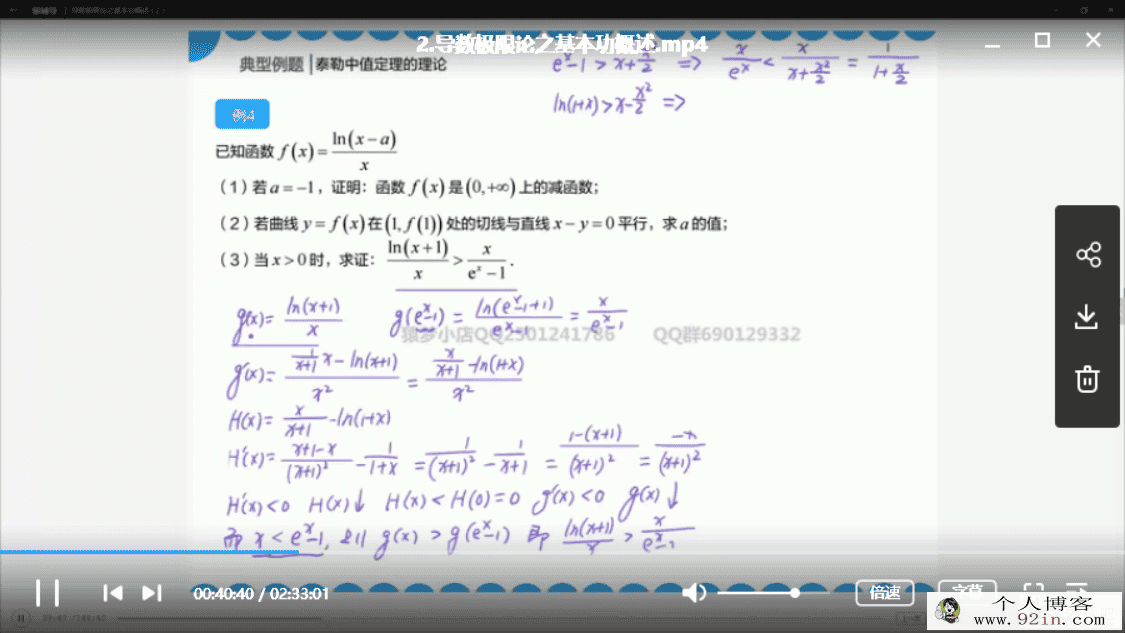 2.导数极限论之基本功概述.mp4
典型例题 泰勒中值定理的理论
e^x-1 > x+x²/2 => x/e^x < x/(x+x²/2) = 1/(1+x/2)
ln(1+x) > x-x²/2 =>
例4
已知函数 f(x)=ln(x-a)/x
（1）若a=-1，证明：函数f(x)是(0,+∞)上的减函数；
（2）若曲线y=f(x)在(1,f(1))处的切线与直线x-y=0平行，求a的值；
（3）当x>0时，求证：ln(x+1)/x > x/(e^x-1).
g(x)=ln(x+1)/x g(e^x-1)=ln(e^x-1+1)/(e^x-1)=x/(e^x-1)
狼梦小店QQ2301241786 QQ群690129332
g'(x)=(1/(x+1) x-ln(x+1))/x² = (x/(x+1)-ln(1+x))/x²
H(x)=x/(x+1)-ln(1+x)
H'(x)=(x+1-x)/(x+1)²-1/(1+x) =1/(x+1)²-1/(x+1) =(1-(x+1))/(x+1)² =-x/(x+1)²
H'(x)<0 H(x)↓ H(x)<H(0)=0 g'(x)<0 g(x)↓
而 x<e^x-1, 则 g(x)>g(e^x-1) 即 ln(x+1)/x > x/(e^x-1)
00:40:40 / 02:33:01
倍速
字幕
个人博客
www.92in.com